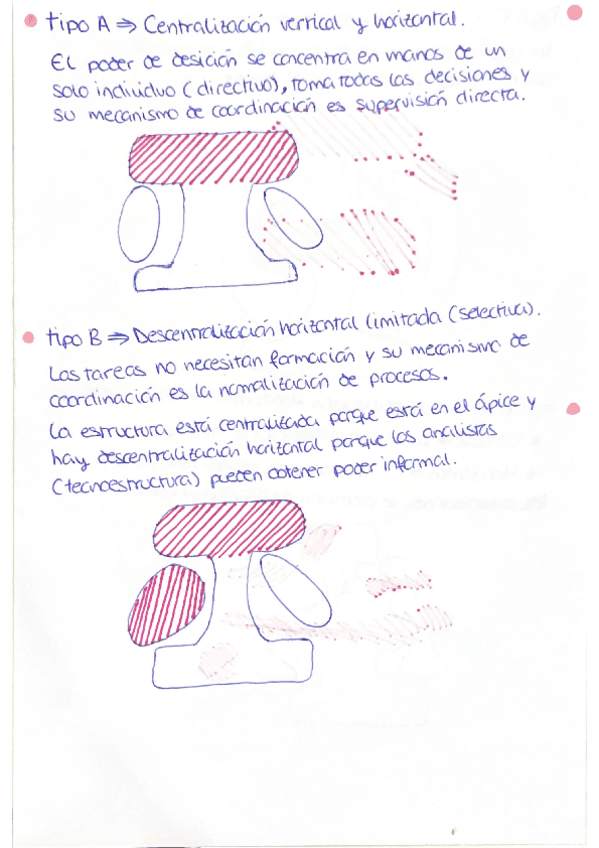 tipo A ⇒ Centralización vertical y horizontal.
El poder de desición se concentra en manos de un
solo individuo (directivo), toma todas las decisiones y
su mecanismo de coordinación es supervisión directa.
tipo B ⇒ Descentralización horizontal limitada (selectiva).
Las tareas no necesitan formación y su mecanismo de
coordinación es la normalización de procesos.
La estructura está centralizada porque está en el ápice y
hay descentralización horizontal porque los analistas
(tecnoestructura) pueden obtener poder informal.